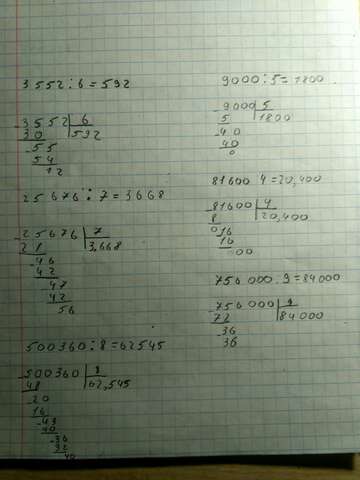 3552:6=592
-3552|6
30|592
-55
54
12
25676:7=3668
-25676|7
21|3.668
-46
42
-47
42
56
500360:8=62545
-500360|8
48|62,545
-20
16
-43
40
-36
32
40
9000:5=1800
-9000|5
5|1800
-40
40
0
81600 4=20,400
-81600|4
8|20,400
016
16
00
756000:9=84000
-756000|9
72|84000
-36
36